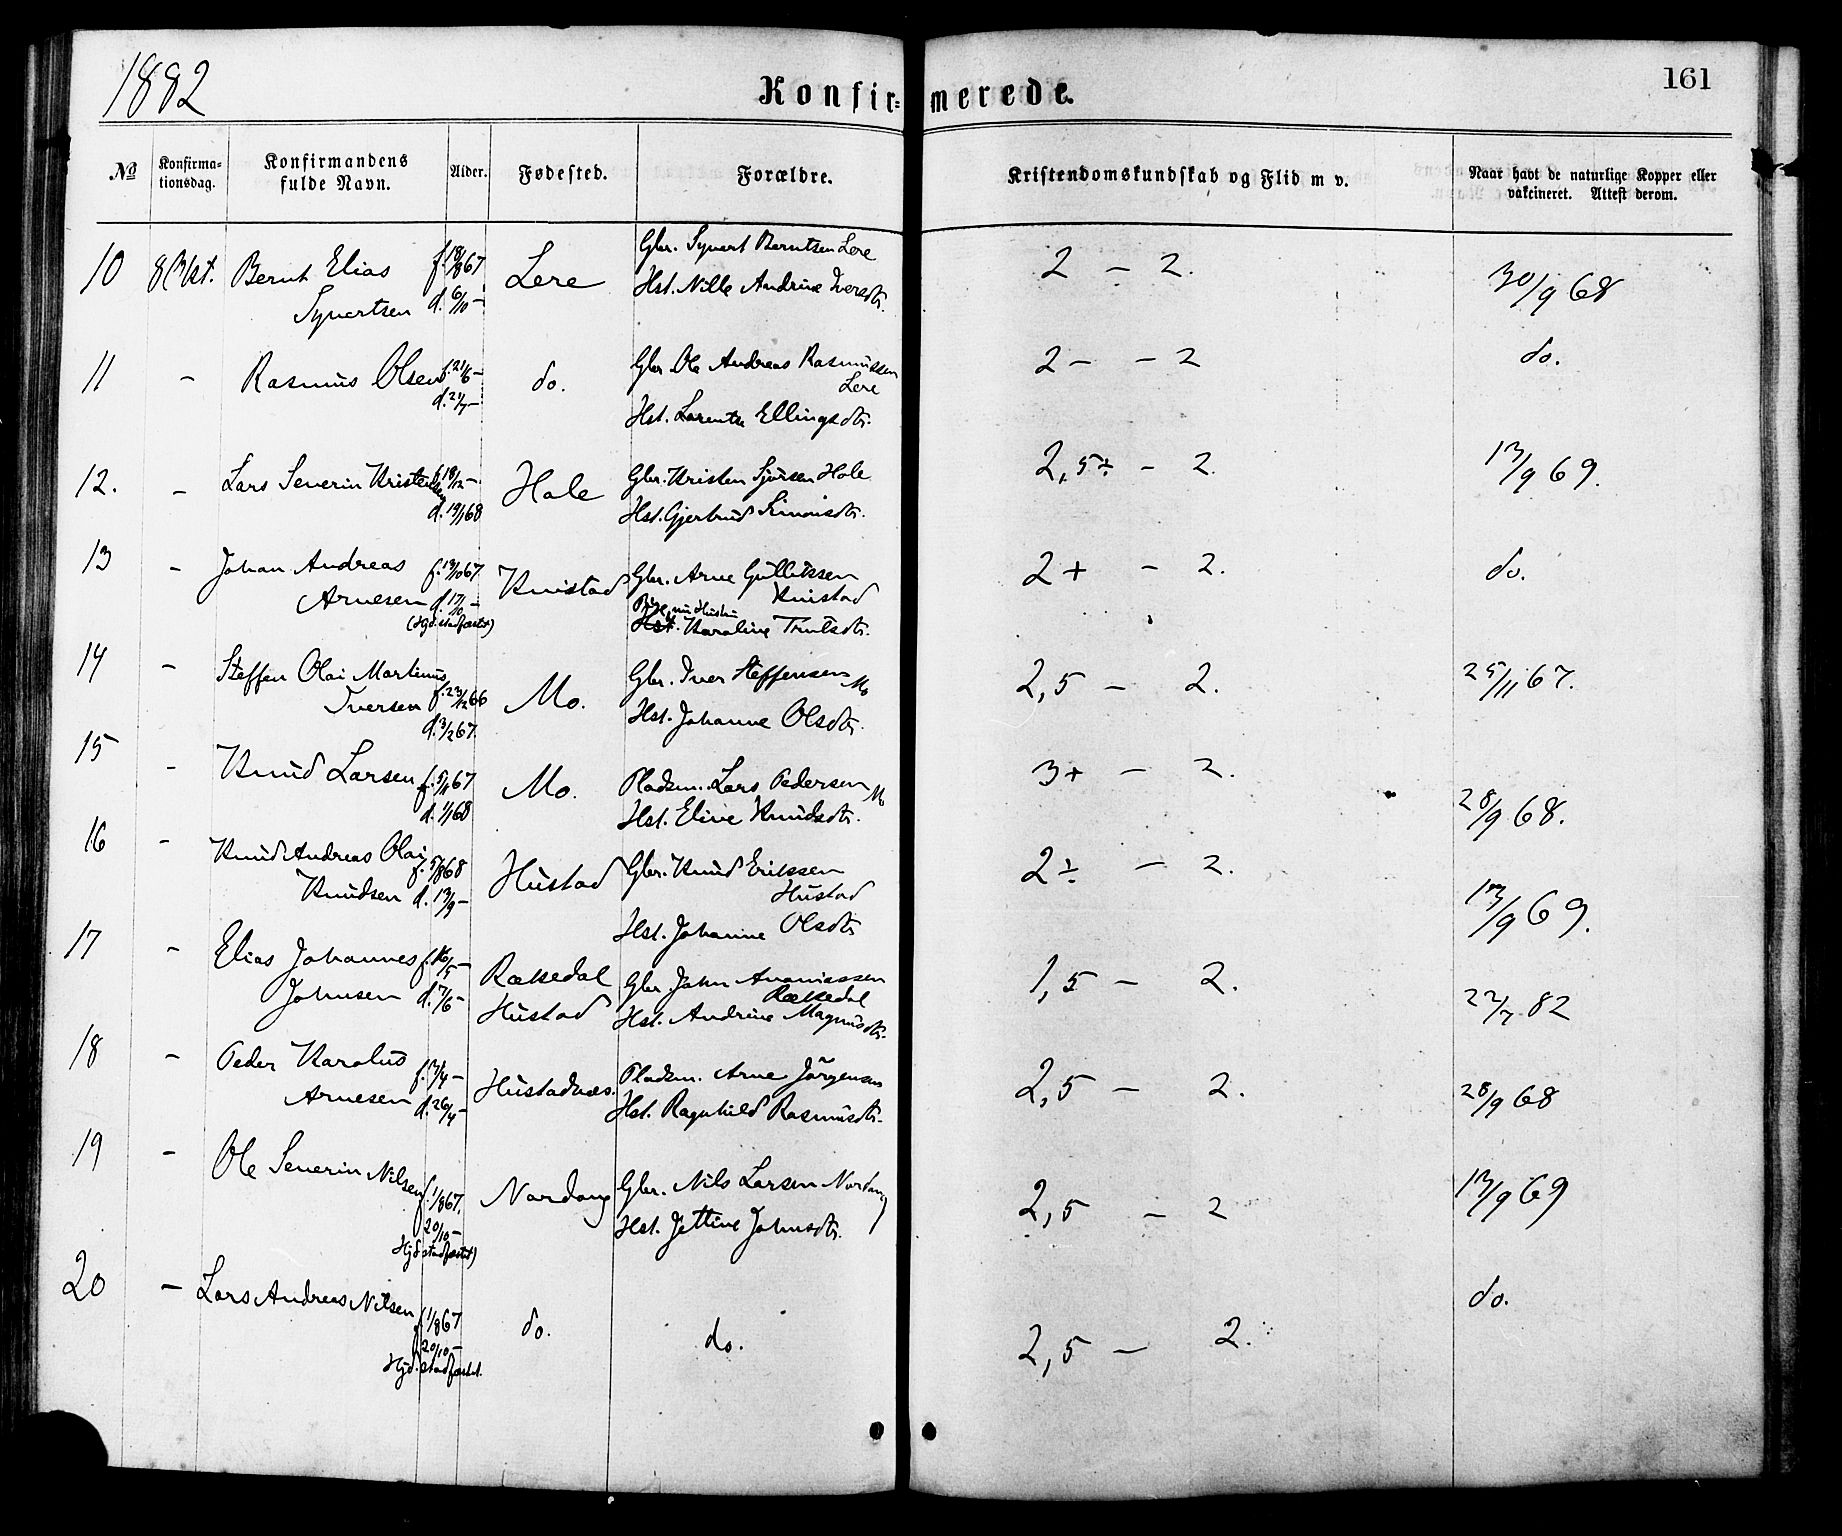 1882
Konfirmerede.
161
No
Konfirma-
tionsdag.
Konfirmandens
fulde Navn.
Alder.
Fødested.
Forældre.
Kristendomskundskab og Flid m v.
Naar havt de naturlige Kopper eller
vakcineret. Attest derom.
10 Bernt Elias f. 18/8 67 Lere Gbr. Syvert Berntsen Lere 2 – 2. 30/9 68
Syvertsen d. 6/10 – Hst. Nille Andrine Iversdtr.
11 – Rasmus Olsen f. 21/6 – do. Gbr Ole Andreas Rasmussen 2 – – 2 do.
d. 21/7 – Lere
Hst. Lorentse Ellingsdtr.
12. – Lars Severin Kristensen 18/12 – Hole Gbr. Kristen Sjursen Hole 2,5÷ – 2. 17/9 69.
d. 19/1 68 Hst. Gjertrud Simonsdtr.
13 – Johan Andreas f. 13/10 67 Knistad Gbr. Arne Gulliksen 2+ – 2. do.
Arnesen d. 17/10 – Knistad
(Hjd. stadfæstet) Hst. Karoline Trulsdtr.
14 – Steffen Olai Martinus f. 23/12 66 Mo. Gbr. Iver Steffensen Mo 2,5 – 2. 25/11 67.
Iversen d. 3/2 67. Hst. Johanne Olsdtr.
15 – Knud Larsen f. 5/11 67 Mo. Pladsm. Lars Pedersen Mo 3+ – 2. 28/9 68.
d. 1/1 68 Hst. Eline Knudsdtr.
16 – Knud Andreas Olai f. 5/8 68 Hustad Gbr. Knud Eriksen 2÷ – 2. 17/9 69.
Knudsen d. 13/9 – Hustad
Hst. Johanne Olsdtr
17 – Elias Johannes f. 16/5 – Rækkedal Gbr. John Ananiassen 1,5 – 2. 22/7 82
Johnsen d. 7/6 – Hustad Rækkedal
Hst. Andrine Magnusdtr.
18 – Peder Karolus Hustadnæs. Pladsm. Arne Jörgensen 2,5 – 2. 28/9 68
Arnesen d. 26/4 – Hst. Ragnhild Rasmusdtr.
19 – Ole Severin Nilsen f. 1/8 67. Nordang Gbr. Nils Larsen Nordang 2,5 – 2 17/9 69
20/10 – Hst. Jettine Johnsdtr.
Hjd stadfæstet)
20 – Lars Andreas Nilsen f 1/8 67 do. do. 2,5 – 2. do.
20/10 –
Hjd. stadfæstet.